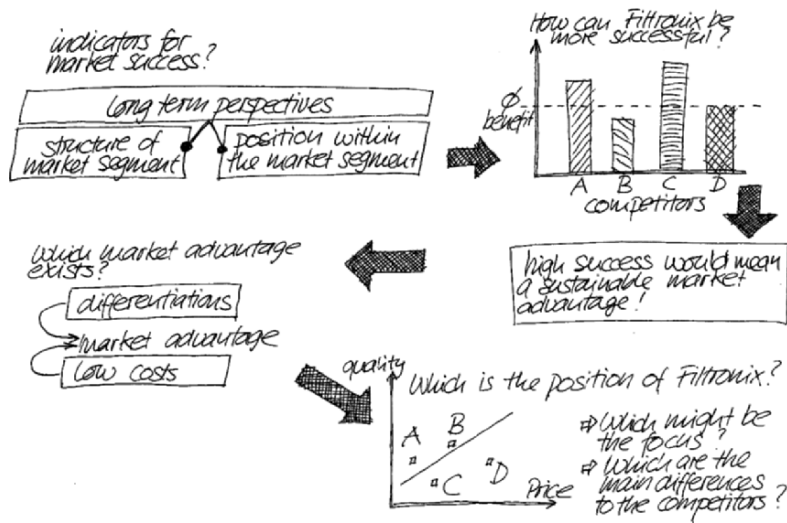 indicators for
market success?
long term perspectives
structure of
market segment
position within
the market segment
How can Filtronix be
more successful?
Ø
benefit
A B C D
competitors
high success would mean
a sustainable market
advantage!
which market advantage
exists?
differentiations
market advantage
low costs
quality
Which is the position of Filtronix?
A B
C D
Price
⇨ Which might be
the focus?
⇨ Which are the
main differences
to the competitors?